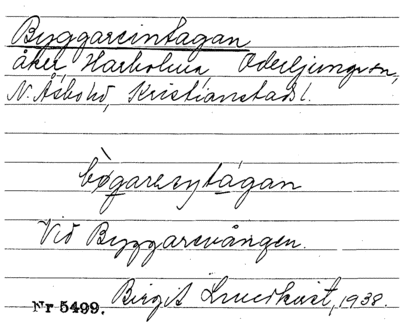 Byggarcintagan
åker Harholma, Oderljunga sn,
N. Åsbo hd, Kristianstads l.
bøgaresytágan
Vid Byggaresvången.
Birgit Lundkvist, 1938.
Nr 5499.